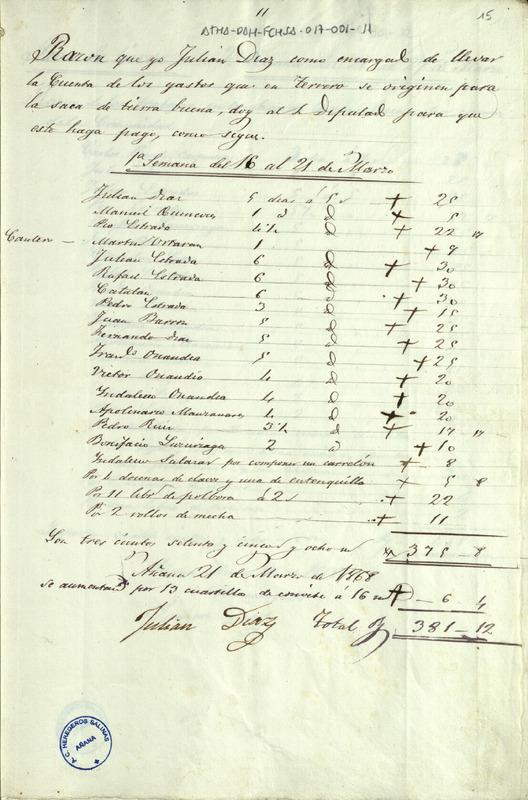 11
15
ATHA-DAH-FCHSA-017-001-11
Razon que yo Julian Diaz como encargado de llevar
la Cuenta de los gastos que en Terrero se originen para
la saca de tierra buena, doy al Sr Diputado para que
este haga pago, como sigue.
1ª Semana del 16 al 21 de Marzo
Julian Diaz 5 dias á 5 rs + 25
Manuel 1 + 5
Pio Estrada 4½ + 22 17
Cantero — Martin Ortaran 1 + 9
Julian Estrada 6 + 30
Rafael Estrada 6 + 30
Catatan 6 + 30
Pedro Estrada 3 + 15
Juan Barron 5 + 25
Fernando Diaz 5 + 25
Franco Onandia 5 + 25
Victor Onandia 4 + 20
Yndalecio Onandia 4 + 20
Apolinario Manzanares 4 + 20
Pedro Ruiz 3½ + 17 17
Bonifacio 2 + 10
Yndalecio Salazar por componer un carreton + 8
Por 4 docenas de clavos y una de entenquilla + 5 8
Por 11 libs de polbora á 2 rs + 22
Por 2 rollos de mecha + 11
Son tres cientos setenta y cinco y ocho 375 - 8
Añana 21 de Marzo de 1868
se aumentan por 13 cuartillos de á 16 + - 6 4
Julian Diaz Total 381 - 12
A.C. HEREDEROS SALINAS
AÑANA